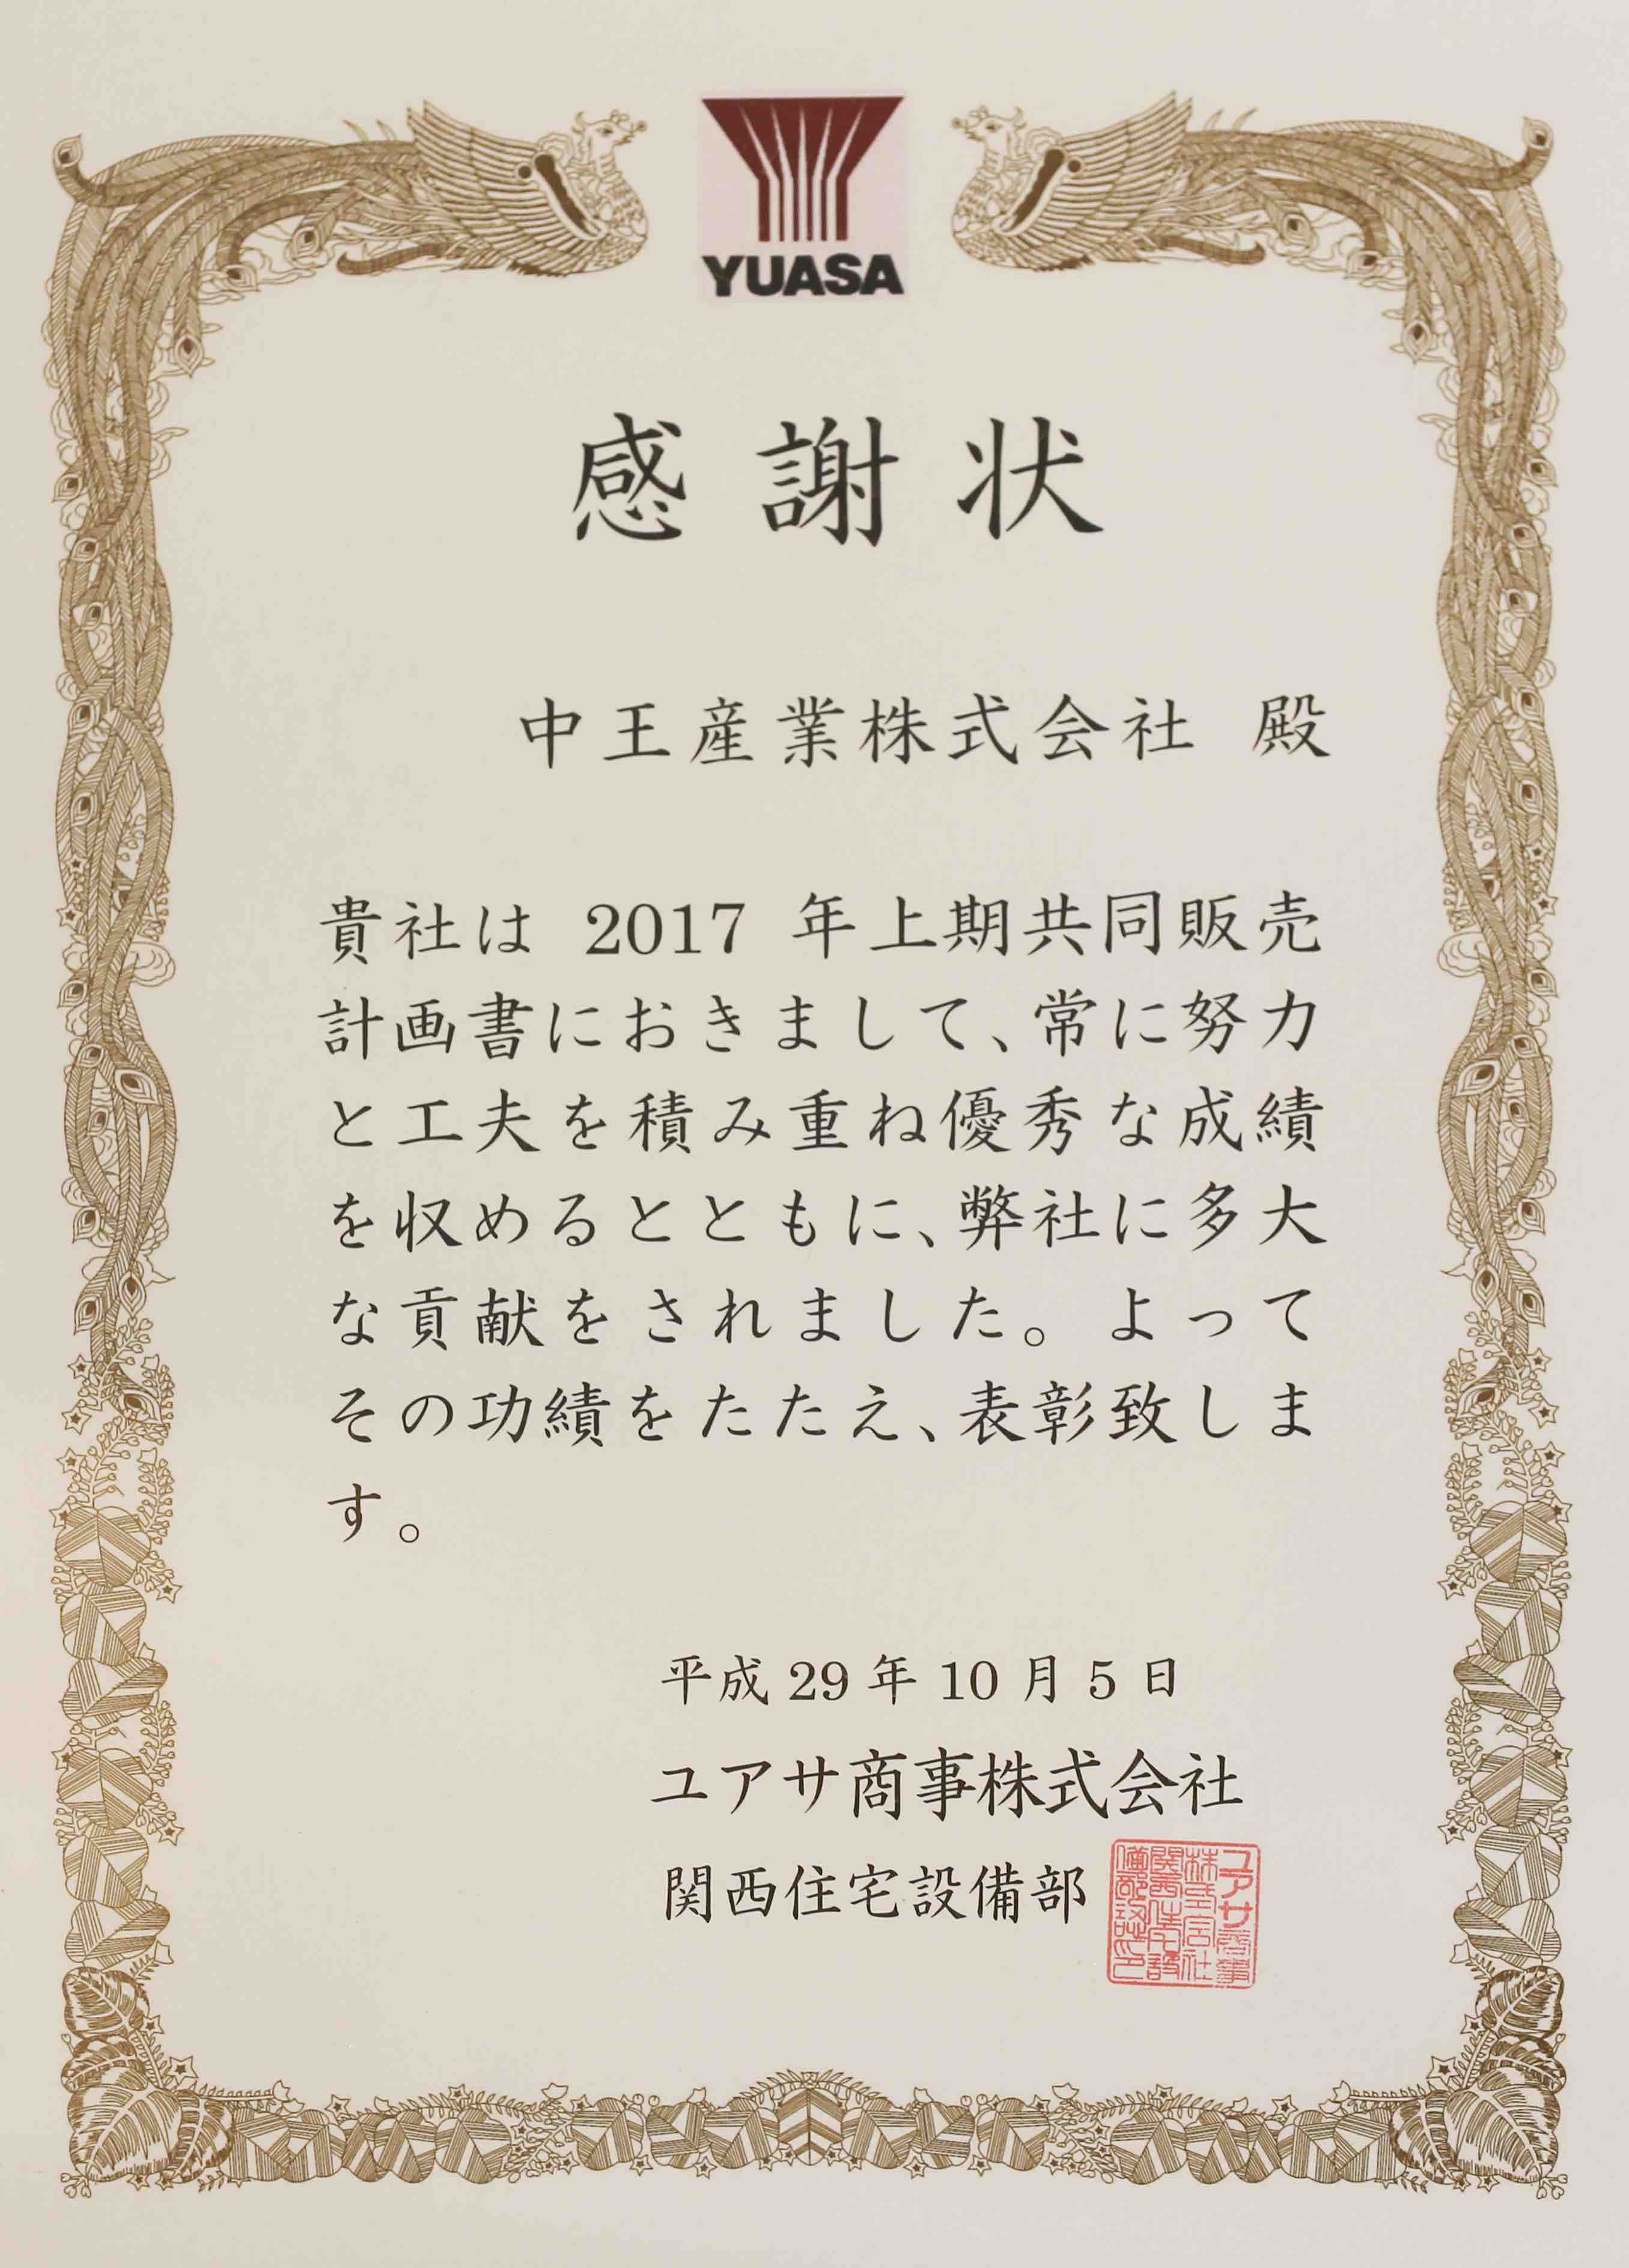 YUASA
感謝状
中王産業株式会社 殿
貴社は 2017 年上期共同販売
計画書におきまして、常に努力
と工夫を積み重ね優秀な成績
を収めるとともに、弊社に多大
な貢献をされました。よって
その功績をたたえ、表彰致しま
す。
平成 29 年 10 月 5 日
ユアサ商事株式会社
関西住宅設備部
ユアサ商事
株式会社
関西住宅設
備部認印